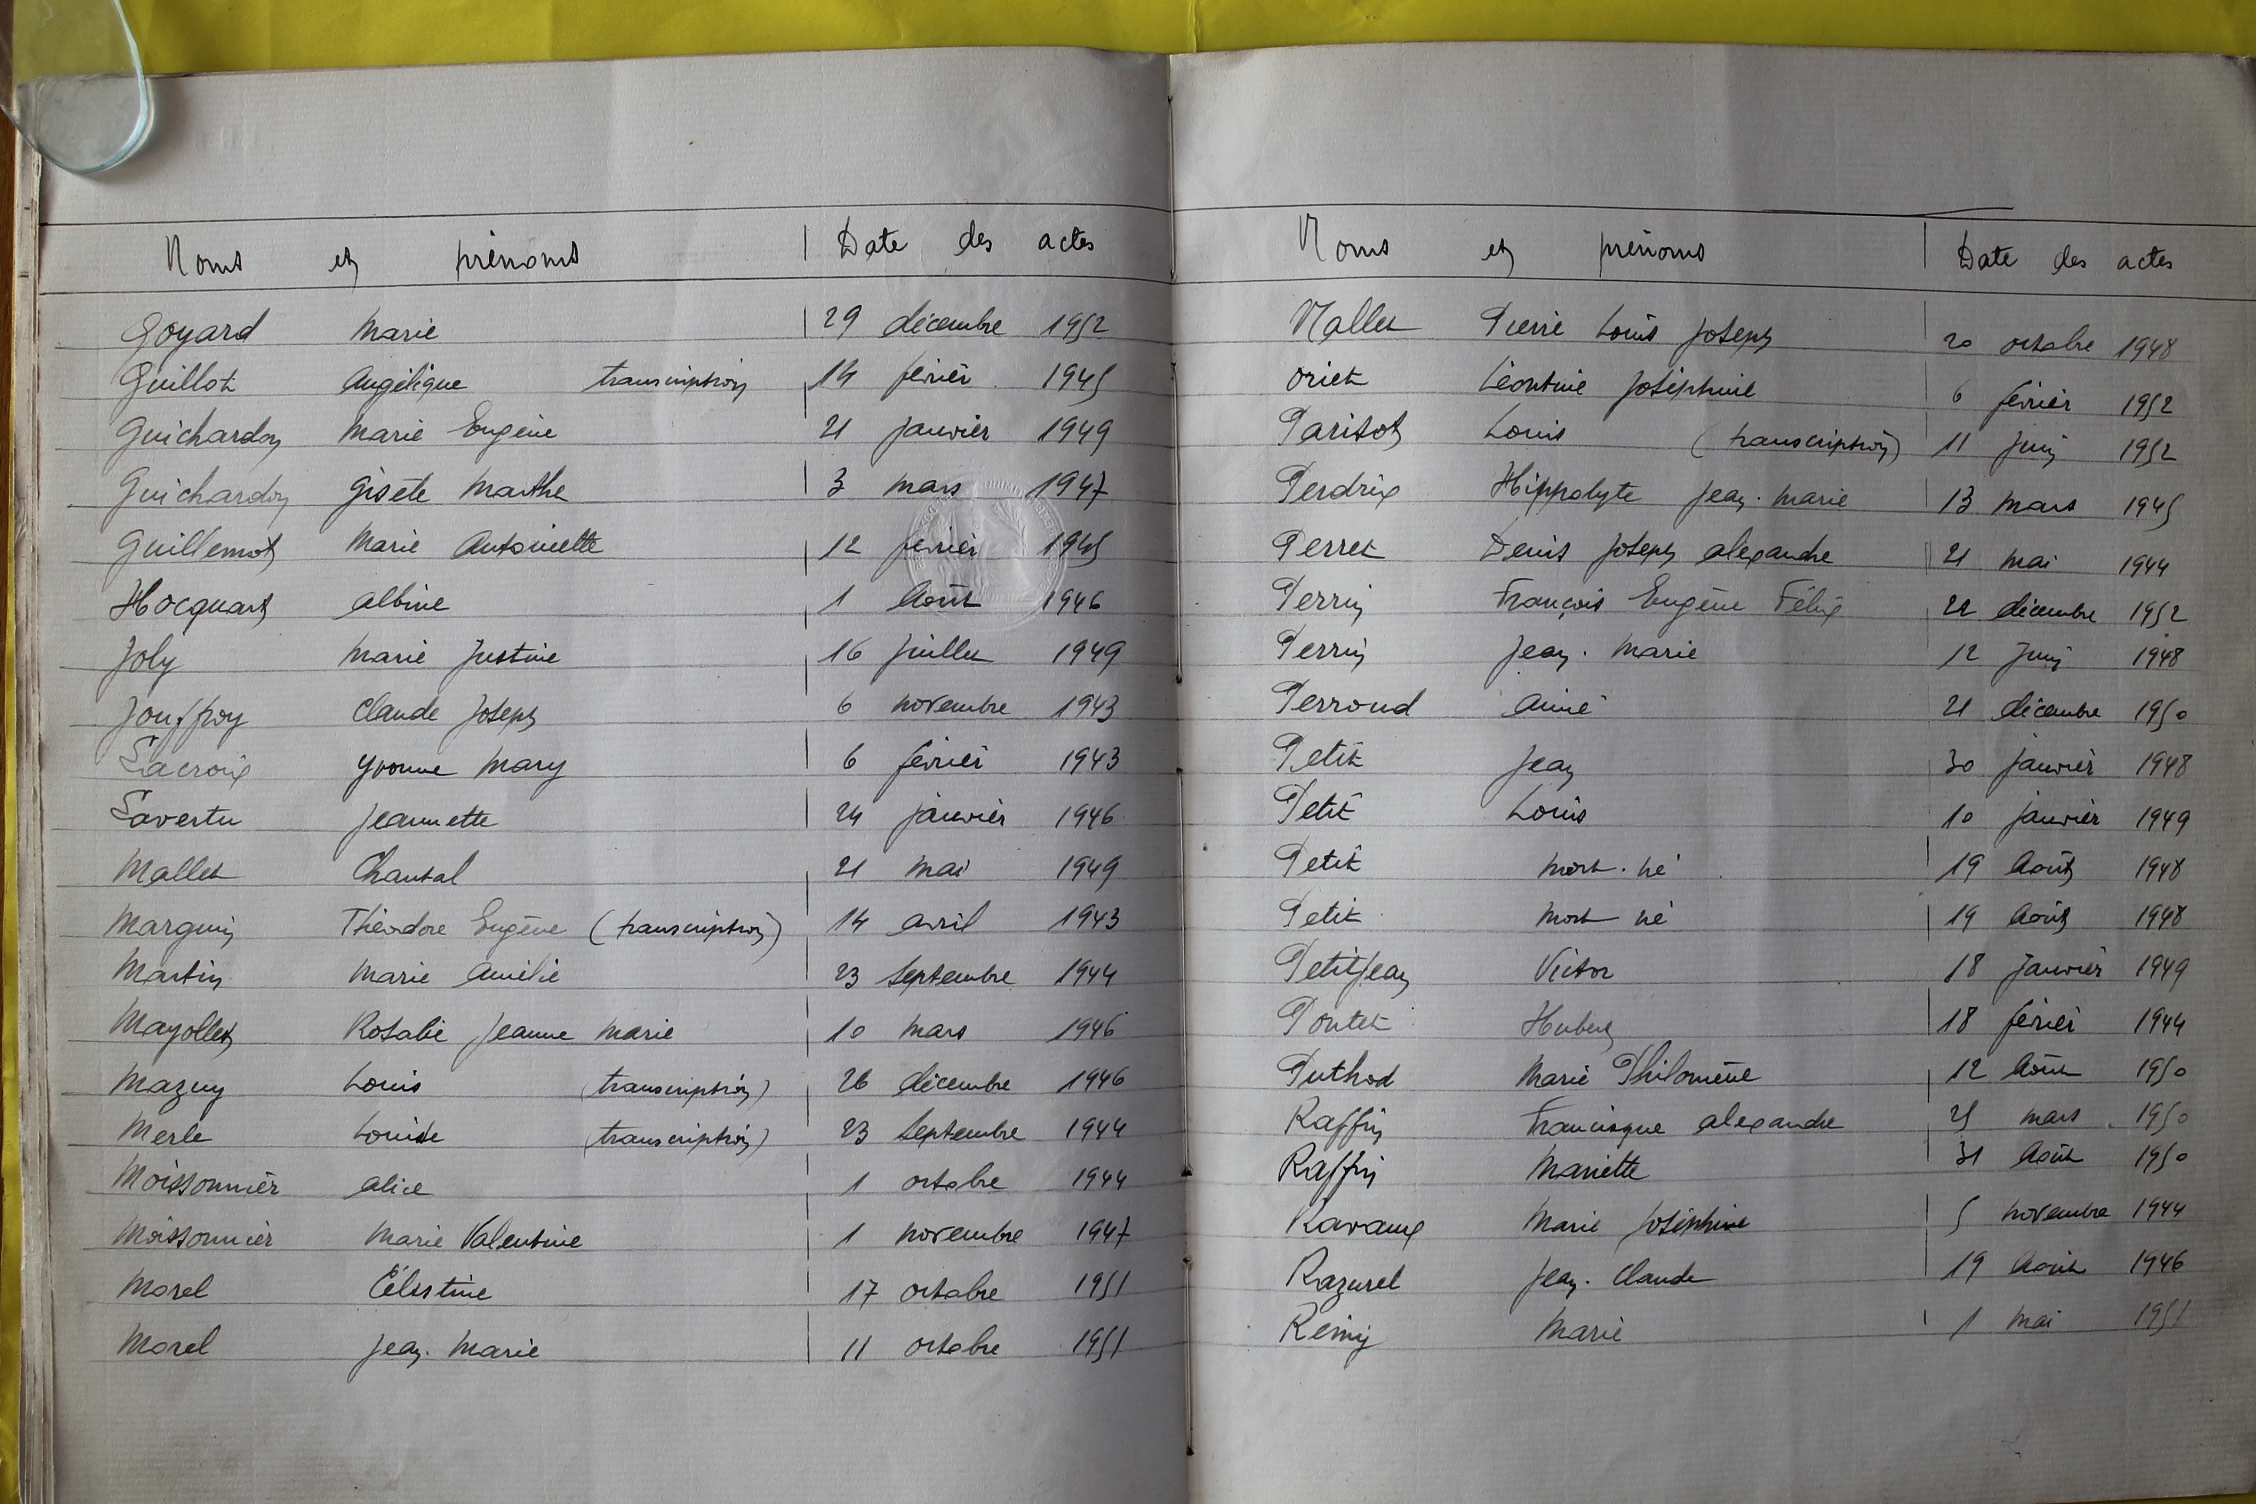 Noms et prénoms Date des actes
Goyard Marie 29 décembre 1952
Guillot Angélique transcription 14 février 1945
Guichardon Marie Eugène 21 janvier 1949
Guichardon Gisèle Marthe 3 mars 1947
Guillemot Marie Antoinette 12 février 1945
Hocquart Albine 1 Août 1946
Joly Marie Justine 16 Juillet 1949
Jouffroy Claude Joseph 6 novembre 1943
Lacroix Yvonne Mary 6 février 1943
Lavertu Jeannette 24 janvier 1946
Mallet Chantal 21 mai 1949
Marguin Théodore Eugène (transcription) 14 avril 1943
Martin Marie Amélie 23 Septembre 1944
Mayollet Rosalie Jeanne Marie 10 mars 1946
Mazuy Louis (transcription) 26 décembre 1946
Merle Louise (transcription) 23 Septembre 1944
Moissonnier Alice 1 octobre 1944
Moissonnier Marie Valentine 1 novembre 1947
Morel Célestine 17 octobre 1951
Morel Jean-Marie 11 octobre 1951
Noms et prénoms Date des actes
Nallet Pierre Louis Joseph 20 octobre 1948
Oriet Léontine Joséphine 6 février 1952
Parisot Louis (transcription) 11 Juin 1952
Perdrix Hippolyte Jean-Marie 13 mars 1945
Perret Denis Joseph Alexandre 21 mai 1944
Perrin François Eugène Félix 22 décembre 1952
Perrin Jean-Marie 12 Juin 1948
Perroud Aimé 21 décembre 1950
Petit Jean 30 janvier 1948
Petit Louis 10 janvier 1949
Petit mort-né 19 Août 1948
Petit mort né 19 Août 1948
Petitjean Victor 18 Janvier 1949
Pontet Hubert 18 février 1944
Puthod Marie Philomène 12 Août 1950
Raffin Francisque Alexandre 25 mars 1950
Raffin Mariette 31 Août 1950
Ravaux Marie Joséphine 5 novembre 1944
Razurel Jean-Claude 19 Août 1946
Rémy Marie 1 mai 1951